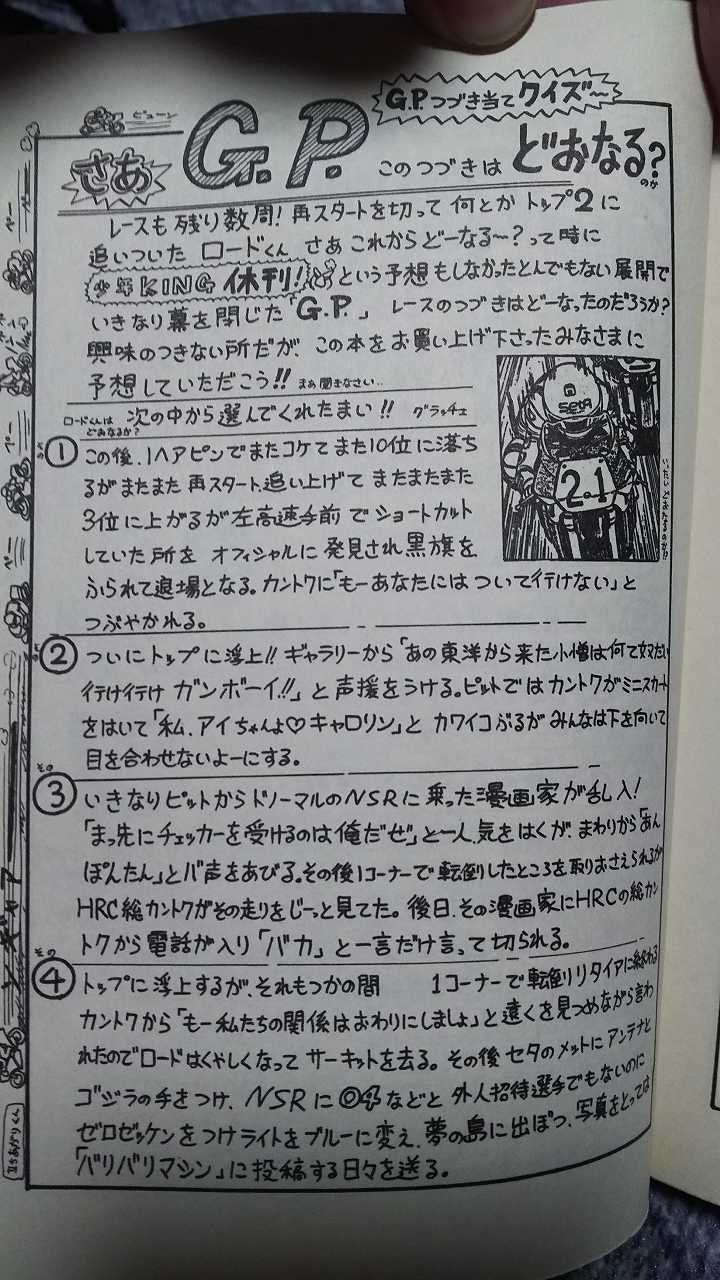 G.P.つづき当てクイズ〜
ビューン
さあ G.P. このつづきは どおなる?
のか
レースも残り数周!再スタートを切って何とかトップ2に
追いついた ロードくん さあ これからどーなる〜?って時に
少年KING 休刊! という予想もしなかったとんでもない展開で
いきなり幕を閉じた「G.P.」 レースのつづきはどーなったのだろうか?
興味のつきない所だが、この本をお買い上げ下さったみなさまに
予想していただこう!! まぁ聞きなさい..
ロードくんは どおなるか?
次の中から選んでくれたまい!! グラッチェ
その
① この後、1ヘアピンでまたコケてまた10位に落ち
るがまたまた再スタート、追い上げて またまたまた
3位に上がるが左高速手前でショートカット
していた所を オフィシャルに発見され黒旗を
ふられて退場となる。カントクに「もーあなたにはついて行けない」と
つぶやかれる。
Seta
21
その
② ついにトップに浮上!! ギャラリーから「あの東洋から来た小僧は何て速い
行け行け ガンボーイ!!」と声援をうける。ピットではカントクがミニスカート
をはいて「私、アイちゃんよ♡キャロリン」と カワイコぶるがみんなは下を向いて
目を合わせないよーにする。
その
③ いきなりピットからドノーマルのNSRに乗った漫画家が乱入!
「まっ先にチェッカーを受けるのは俺だぜ」と一人、気をはくが、まわりから「あん
ぽんたん」とバ声をあびる。その後1コーナーで転倒したところを取りおさえられるが
HRC総カントクがその走りをじーっと見てた。後日、その漫画家にHRCの総カン
トクから電話が入り「バカ」と一言だけ言って切られる。
その
④ トップに浮上するが、それもつかの間 1コーナーで転倒リタイアに終わる
カントクから「もー私たちの関係はおわりにしましょ」と遠くを見つめながら言わ
れたのでロードはくやしくなって サーキットを去る。その後セタのメットにアンテナと
ゴジラの手をつけ、NSRに などと 外人招待選手でもないのに
ゼロゼッケンをつけライトをブルーに変え、夢の島に出ぼつ、写真をとっては
「バリバリマシン」に投稿する日々を送る。